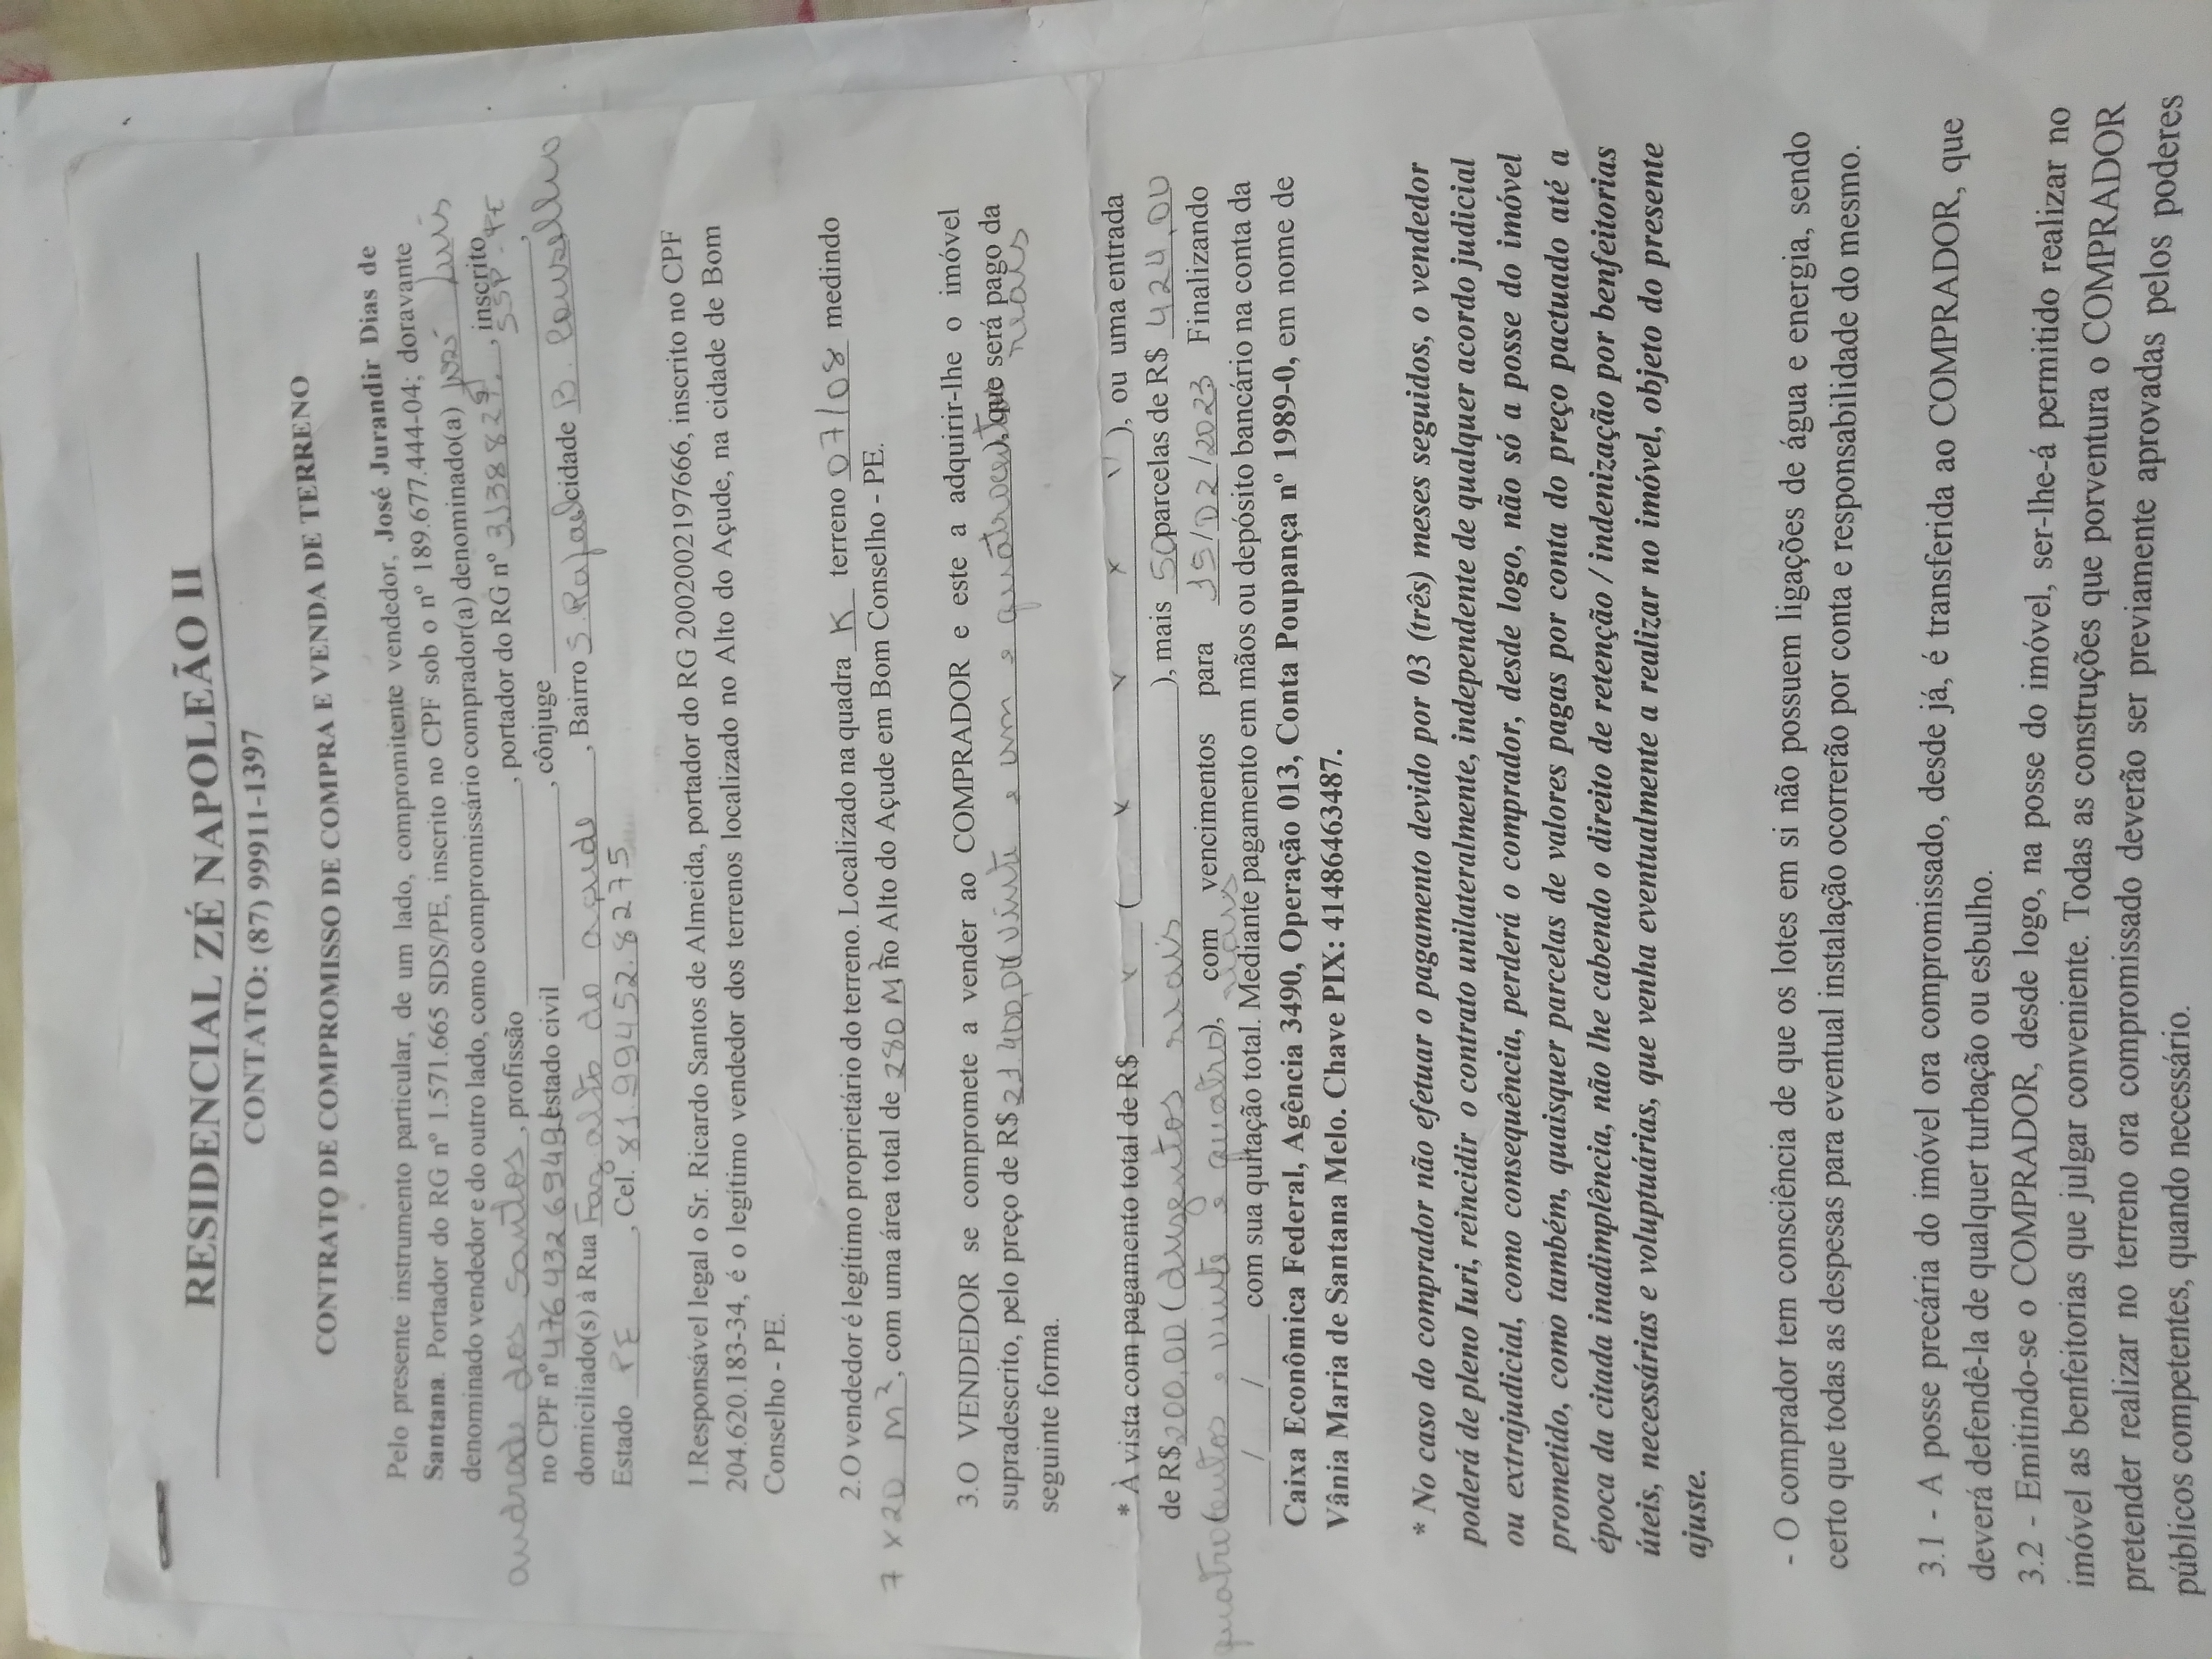 RESIDENCIAL ZÉ NAPOLEÃO II
CONTATO: (87) 99911-1397
CONTRATO DE COMPROMISSO DE COMPRA E VENDA DE TERRENO
Pelo presente instrumento particular, de um lado, compromitente vendedor, José Jurandir Dias de
Santana. Portador do RG nº 1.571.665 SDS/PE, inscrito no CPF sob o nº 189.677.444-04; doravante
denominado vendedor e do outro lado, como compromissário comprador(a) denominado(a) José Luis
andrade dos Santos, profissão ____, portador do RG nº 3138829, inscrito
SSP-PE
no CPF nº 476432694 estado civil ____, cônjuge ____,
domiciliado(s) à Rua Faz alto do açude, Bairro S. Rafael cidade B. Conselho
Estado PE, Cel. 81.99452.8275
1.Responsável legal o Sr. Ricardo Santos de Almeida, portador do RG 2002002197666, inscrito no CPF
204.620.183-34, é o legítimo vendedor dos terrenos localizado no Alto do Açude, na cidade de Bom
Conselho - PE.
2.O vendedor é legítimo proprietário do terreno. Localizado na quadra K terreno 07/08 medindo
7 x 20 m², com uma área total de 280 M², no Alto do Açude em Bom Conselho - PE.
3.O VENDEDOR se compromete a vender ao COMPRADOR e este a adquirir-lhe o imóvel
supradescrito, pelo preço de R$ 21.400,00 (vinte e um e quatrocentos), que será pago da
reais
seguinte forma.
* À vista com pagamento total de R$ x ( x x x x ), ou uma entrada
de R$ 200,00 (duzentos reais), mais 50 parcelas de R$ 424,00
(quatrocentos e vinte e quatro), com vencimentos para 15/02/2023 Finalizando
reais
____/____/____ com sua quitação total. Mediante pagamento em mãos ou depósito bancário na conta da
Caixa Econômica Federal, Agência 3490, Operação 013, Conta Poupança nº 1989-0, em nome de
Vânia Maria de Santana Melo. Chave PIX: 41486463487.
* No caso do comprador não efetuar o pagamento devido por 03 (três) meses seguidos, o vendedor
poderá de pleno Iuri, reincidir o contrato unilateralmente, independente de qualquer acordo judicial
ou extrajudicial, como consequência, perderá o comprador, desde logo, não só a posse do imóvel
prometido, como também, quaisquer parcelas de valores pagas por conta do preço pactuado até a
época da citada inadimplência, não lhe cabendo o direito de retenção / indenização por benfeitorias
úteis, necessárias e voluptuárias, que venha eventualmente a realizar no imóvel, objeto do presente
ajuste.
- O comprador tem consciência de que os lotes em si não possuem ligações de água e energia, sendo
certo que todas as despesas para eventual instalação ocorrerão por conta e responsabilidade do mesmo.
3.1 - A posse precária do imóvel ora compromissado, desde já, é transferida ao COMPRADOR, que
deverá defendê-la de qualquer turbação ou esbulho.
3.2 - Emitindo-se o COMPRADOR, desde logo, na posse do imóvel, ser-lhe-á permitido realizar no
imóvel as benfeitorias que julgar conveniente. Todas as construções que porventura o COMPRADOR
pretender realizar no terreno ora compromissado deverão ser previamente aprovadas pelos poderes
públicos competentes, quando necessário.